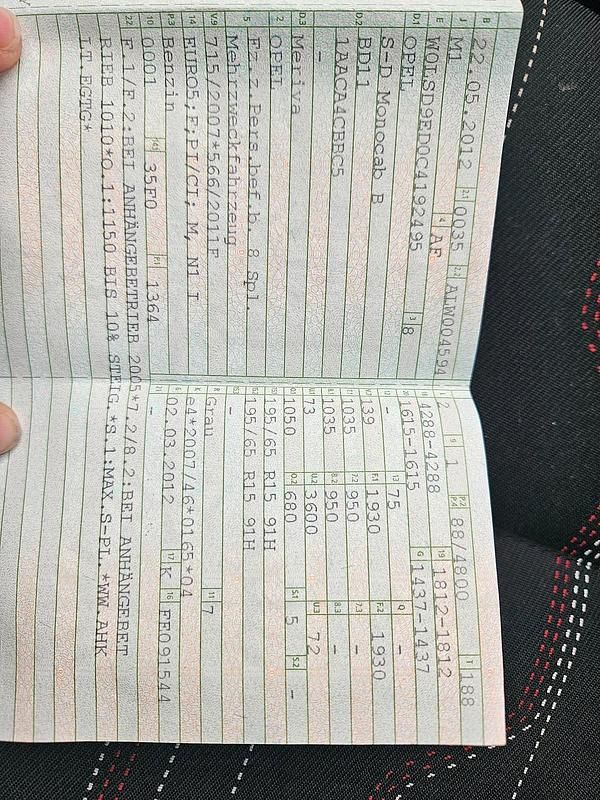 B 22.05.2012 2.1 0035 2.2 ALW004594
J M1 4 AF
E W0LSD9ED0C4192495 3 8
D.1 OPEL
D.2 S-D Monocab B
BD11
1AACA4CBBC5
-
D.3 Meriva
2 OPEL
5 Fz.z.Pers.bef.b. 8 Spl.
Mehrzweckfahrzeug
V.9 715/2007*566/2011F
14 EURO5;F;PI/CI; M, N1 I
P.3 Benzin
10 0001 14.1 35F0 P.1 1364
22 F.1/F.2:BEI ANHÄNGEBETRIEB 2005*7.2/8.2:BEI ANHÄNGEBET
RIEB 1010*O.1:1150 BIS 10% STEIG.*S.1:MAX.S-PL.*WW.AHK
LT.EGTG*
L 2 9 1 P.2 P.4 88/4800 T 188
18 4288-4288 19 1812-1812
20 1615-1615 G 1437-1437
12 - 13 75 Q -
V.7 139 F.1 1930 F.2 1930
7.1 1035 7.2 950 7.3 -
8.1 1035 8.2 950 8.3 -
U.1 73 U.2 3600 U.3 72
O.1 1050 O.2 680 S.1 5 S.2 -
15.1 195/65 R15 91H
15.2 195/65 R15 91H
15.3 -
R Grau 11 7
K e4*2007/46*0165*04
6 02.03.2012 17 K 16 FE091544
21 -